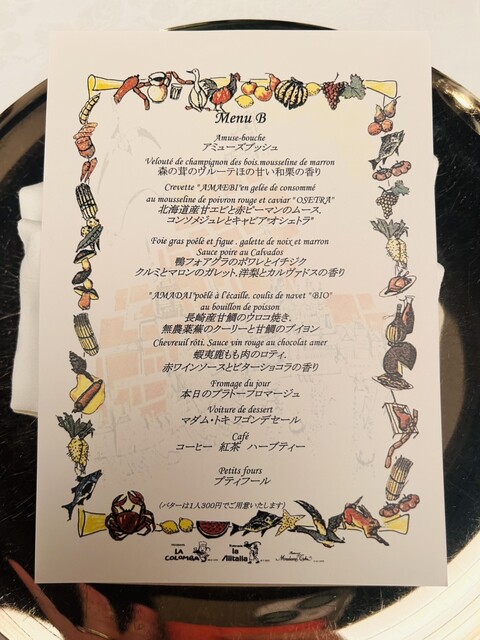 Menu B
Amuse-bouche
アミューズブッシュ
Velouté de champignon des bois.mousseline de marron
森の茸のヴルーテほの甘い和栗の香り
Crevette "AMAEBI"en gelée de consommé
au mousseline de poivron rouge et caviar "OSETRA"
北海道産甘エビと赤ピーマンのムース、
コンソメジュレとキャビア"オシェトラ"
Foie gras poêlé et figue . galette de noix et marron
Sauce poire au Calvados
鴨フォアグラのポワレとイチジク
クルミとマロンのガレット、洋梨とカルヴァドスの香り
"AMADAI"poêlé à l'écaille. coulis de navet "BIO"
au bouillon de poisson
長崎産甘鯛のウロコ焼き、
無農薬蕪のクーリーと甘鯛のブイヨン
Chevreuil rôti. Sauce vin rouge au chocolat amer
蝦夷鹿もも肉のロティ、
赤ワインソースとビターショコラの香り
Fromage du jour
本日のプラトーフロマージュ
Voiture de dessert
マダム・トキ ワゴンデセール
Café
コーヒー 紅茶 ハーブティー
Petits fours
プティフール
(バターは1人300円でご用意いたします)
LA COLOMBA
la Alitalia
Madame Toki